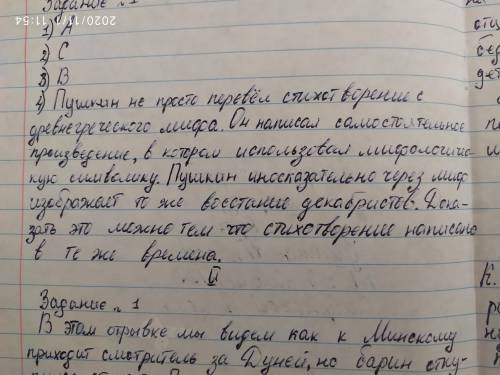 Задание №1
1) А
2) С
3) В
4) Пушкин не просто перевём стихотворение с
древнегреческого мифа. Он написал самостоятельное
произведение, в котором использовал мифологиче-
скую символику. Пушкин иносказательно через миф
изображает то же восстание декабристов. Дока-
зать это можно тем что стихотворение написано
в те же времена.
II
Задание №1
В этом отрывке мы видем как к Минскому
приходит смотритель за Дуней, но барин отку-
2020/1/1 11:54